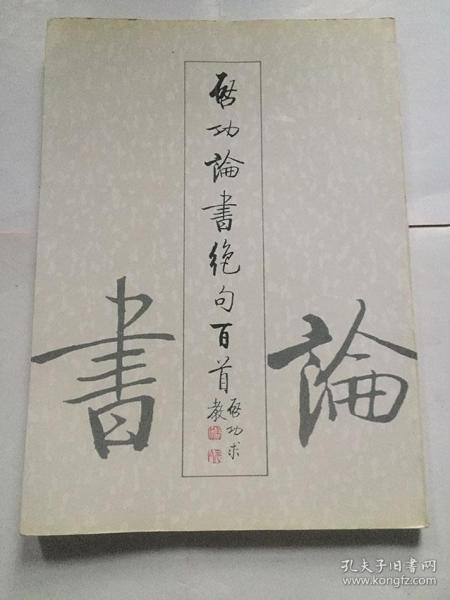 启功論書絶句百首
启功求
教
論
書
孔夫子旧书网
www.kongfz.com